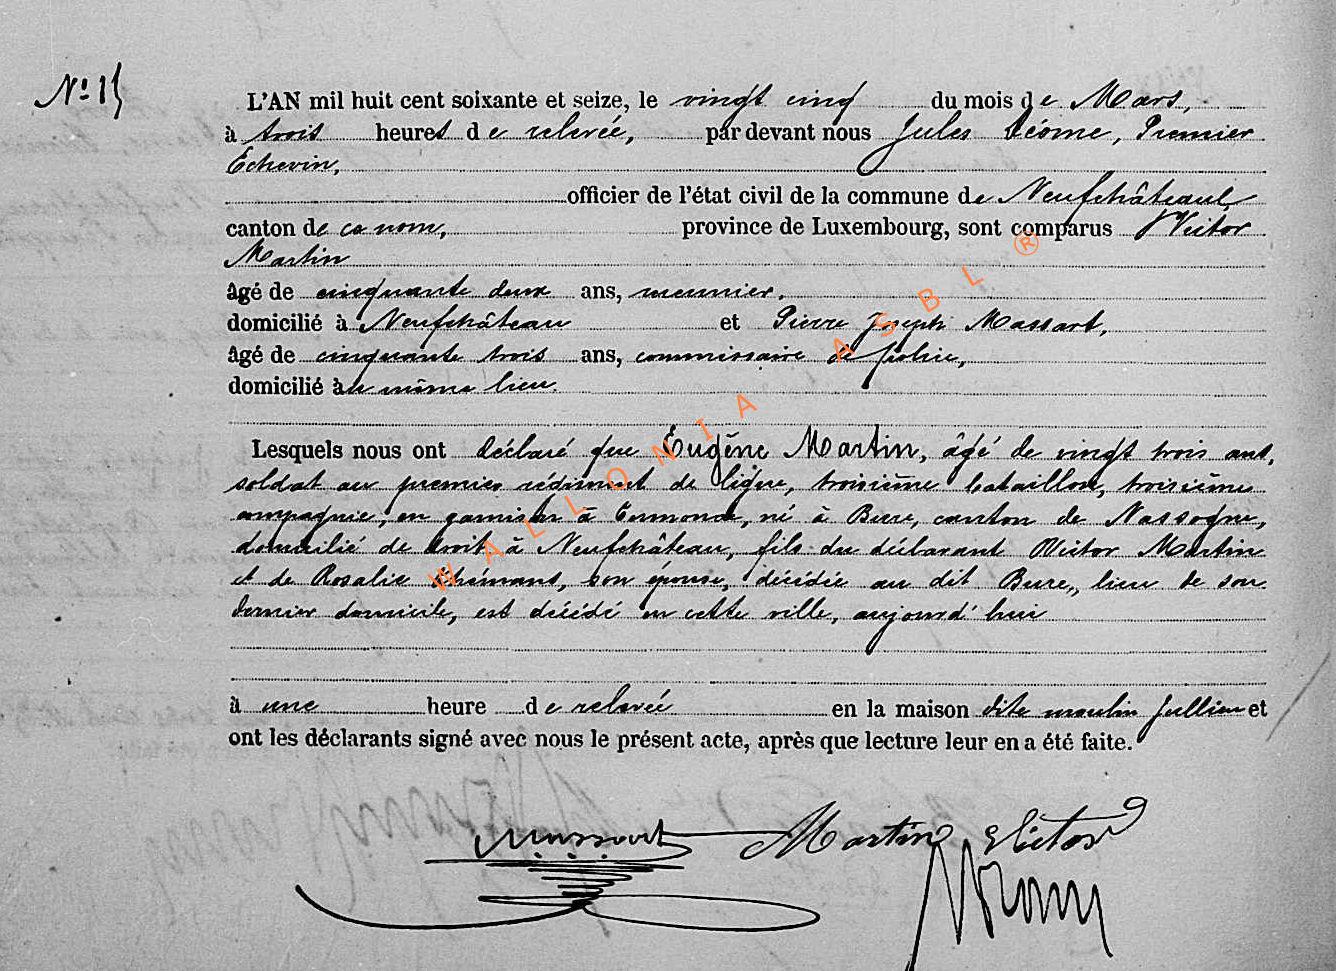 N° 15
L'AN mil huit cent soixante et seize, le vingt cinq du mois de Mars,
à trois heures de relevée, par devant nous Jules Déome, Premier
Échevin,
officier de l'état civil de la commune de Neufchâteau,
canton de ce nom, province de Luxembourg, sont comparus Victor
Martin
âgé de cinquante deux ans, meunier,
domicilié à Neufchâteau et Pierre Joseph Massart,
âgé de cinquante trois ans, commissaire de police,
domicilié au même lieu.
Lesquels nous ont déclaré que Eugène Martin, âgé de vingt trois ans,
soldat au premier régiment de ligne, troisième bataillon, troisième
compagnie, en garnison à Termonde, né à Bure, canton de Nassogne,
domicilié de droit à Neufchâteau, fils du déclarant Victor Martin
et de Rosalie, son épouse, décédée au dit Bure, lieu de son
dernier domicile, est décédé en cette ville, aujourd'hui
à une heure de relevée en la maison dite moulin Jullien et
ont les déclarants signé avec nous le présent acte, après que lecture leur en a été faite.
Massart Martin Victor
WALLONIA ASBL ®